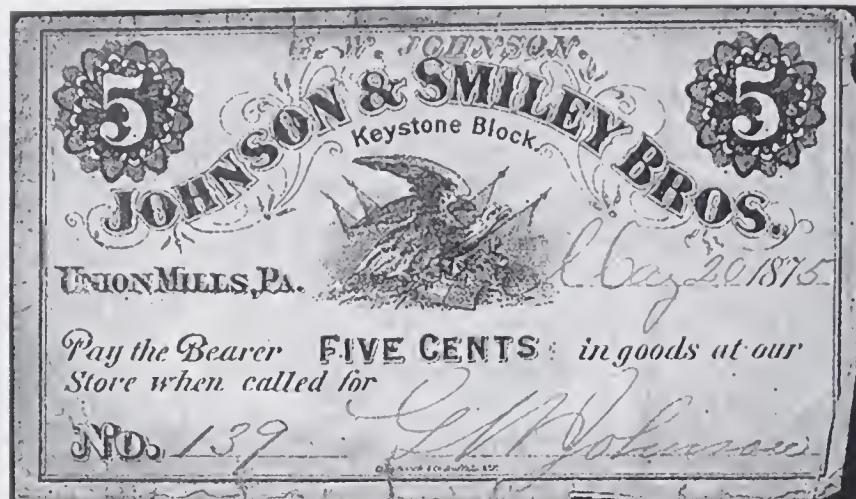 5 5
G. W. JOHNSON.
JOHNSON & SMILEY BROS.
Keystone Block.
UNION MILLS, PA. May 20 1875
Pay the Bearer FIVE CENTS in goods at our
Store when called for
No. 139 GW Johnson